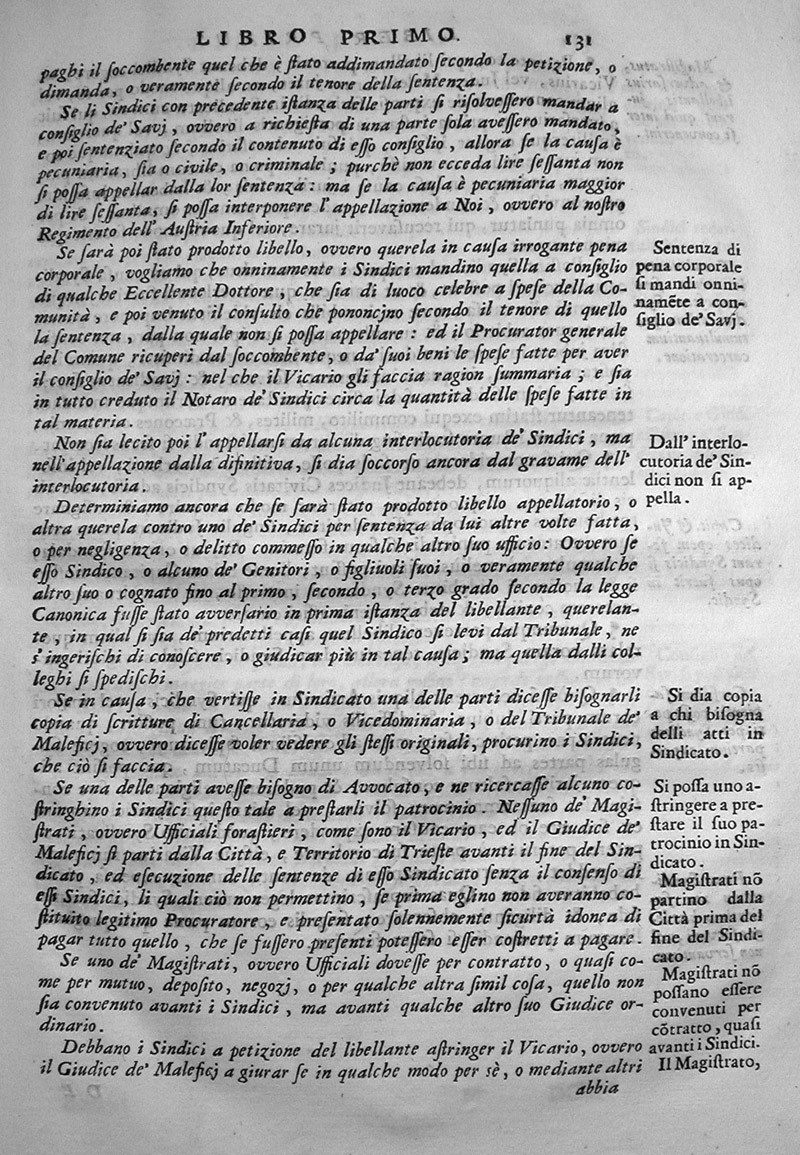 LIBRO PRIMO. 131
paghi il ſoccombente quel che è ſtato addimandato ſecondo la petizione, o
dimanda, o veramente ſecondo il tenore della ſentenza.
Se li Sindici con precedente iſtanza delle parti ſi riſolveſſero mandar a
conſiglio de' Savj, ovvero a richieſta di una parte ſola aveſſero mandato,
e poi ſentenziato ſecondo il contenuto di eſſo conſiglio, allora ſe la cauſa è
pecuniaria, ſia o civile, o criminale; purchè non ecceda lire ſeſſanta non
ſi poſſa appellar dalla lor ſentenza: ma ſe la cauſa è pecuniaria maggior
di lire ſeſſanta, ſi poſſa interponere l'appellazione a Noi, ovvero al noſtro
Regimento dell' Auſtria Inferiore.
Se ſarà poi ſtato prodotto libello, ovvero querela in cauſa irrogante pena
corporale, vogliamo che onninamente i Sindici mandino quella a conſiglio
di qualche Eccellente Dottore, che ſia di luoco celebre a ſpeſe della Co-
munità, e poi venuto il conſulto che pononcjno ſecondo il tenore di quello
la ſentenza, dalla quale non ſi poſſa appellare: ed il Procurator generale
del Comune ricuperi dal ſoccombente, o da' ſuoi beni le ſpeſe fatte per aver
il conſiglio de' Savj: nel che il Vicario gli faccia ragion ſummaria; e ſia
in tutto creduto il Notaro de' Sindici circa la quantità delle ſpeſe fatte in
tal materia.
Sentenza di
pena corporale
ſi mandi onni-
namēte a con-
ſiglio de' Savj.
Non ſia lecito poi l'appellarſi da alcuna interlocutoria de' Sindici, ma
nell'appellazione dalla difinitiva, ſi dia ſoccorſo ancora dal gravame dell'
interlocutoria.
Dall' interlo-
cutoria de' Sin-
dici non ſi ap-
pella.
Determiniamo ancora che ſe ſarà ſtato prodotto libello appellatorio, o
altra querela contro uno de' Sindici per ſentenza da lui altre volte fatta,
o per negligenza, o delitto commeſſo in qualche altro ſuo ufficio: Ovvero ſe
eſſo Sindico, o alcuno de' Genitori, o figliuoli ſuoi, o veramente qualche
altro ſuo o cognato fino al primo, ſecondo, o terzo grado ſecondo la legge
Canonica fuſſe ſtato avverſario in prima iſtanza del libellante, querelan-
te, in qual ſi ſia de' predetti caſi quel Sindico ſi levi dal Tribunale, ne
s'ingeriſchi di conoſcere, o giudicar più in tal cauſa; ma quella dalli col-
leghi ſi ſpediſchi.
Se in cauſa, che vertiſſe in Sindicato una delle parti diceſſe biſognarli
copia di ſcritture di Cancellaria, o Vicedominaria, o del Tribunale de'
Maleficj, ovvero diceſſe voler vedere gli ſteſſi originali, procurino i Sindici,
che ciò ſi faccia.
Si dia copia
a chi biſogna
delli atti in
Sindicato.
Se una delle parti aveſſe biſogno di Avvocato, e ne ricercaſſe alcuno co-
ſtringhino i Sindici queſto tale a preſtarli il patrocinio. Neſſuno de' Magi-
ſtrati, ovvero Ufficiali foraſtieri, come ſono il Vicario, ed il Giudice de'
Maleficj ſi parti dalla Città, e Territorio di Trieſte avanti il fine del Sin-
dicato, ed eſecuzione delle ſentenze di eſſo Sindicato ſenza il conſenſo di
eſſi Sindici, li quali ciò non permettino, ſe prima eglino non averanno co-
ſtituito legitimo Procuratore, e preſentato ſolennemente ſicurtà idonea di
pagar tutto quello, che ſe fuſſero preſenti poteſſero eſſer coſtretti a pagare.
Si poſſa uno a-
ſtringere a pre-
ſtare il ſuo pa-
trocinio in Sin-
dicato.
Magiſtrati nō
partino dalla
Città prima del
fine del Sindi-
cato.
Se uno de' Magiſtrati, ovvero Ufficiali doveſſe per contratto, o quaſi co-
me per mutuo, depoſito, negozj, o per qualche altra ſimil coſa, quello non
ſia convenuto avanti i Sindici, ma avanti qualche altro ſuo Giudice or-
dinario.
Magiſtrati nō
poſſano eſſere
convenuti per
cōtratto, quaſi
avanti i Sindici.
Debbano i Sindici a petizione del libellante aſtringer il Vicario, ovvero
il Giudice de' Maleficj a giurar ſe in qualche modo per sè, o mediante altri
Il Magiſtrato,
abbia